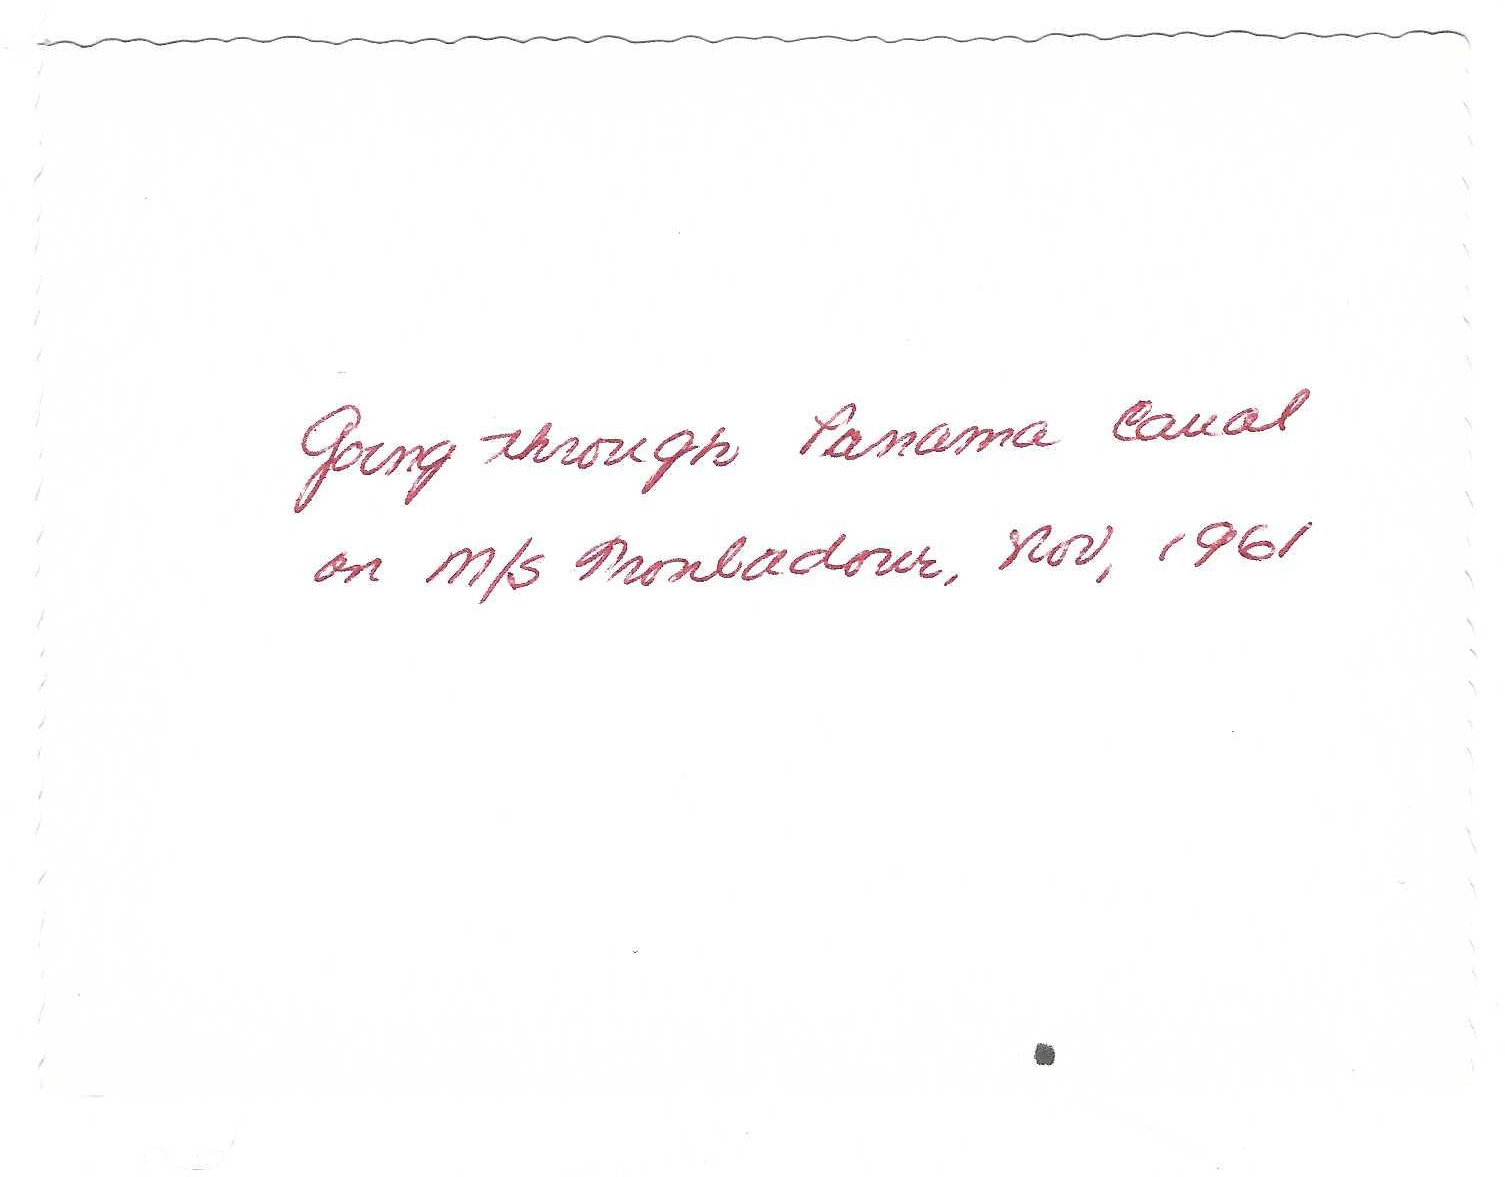 Going through Panama Canal
on M/S Troubadour, Nov, 1961